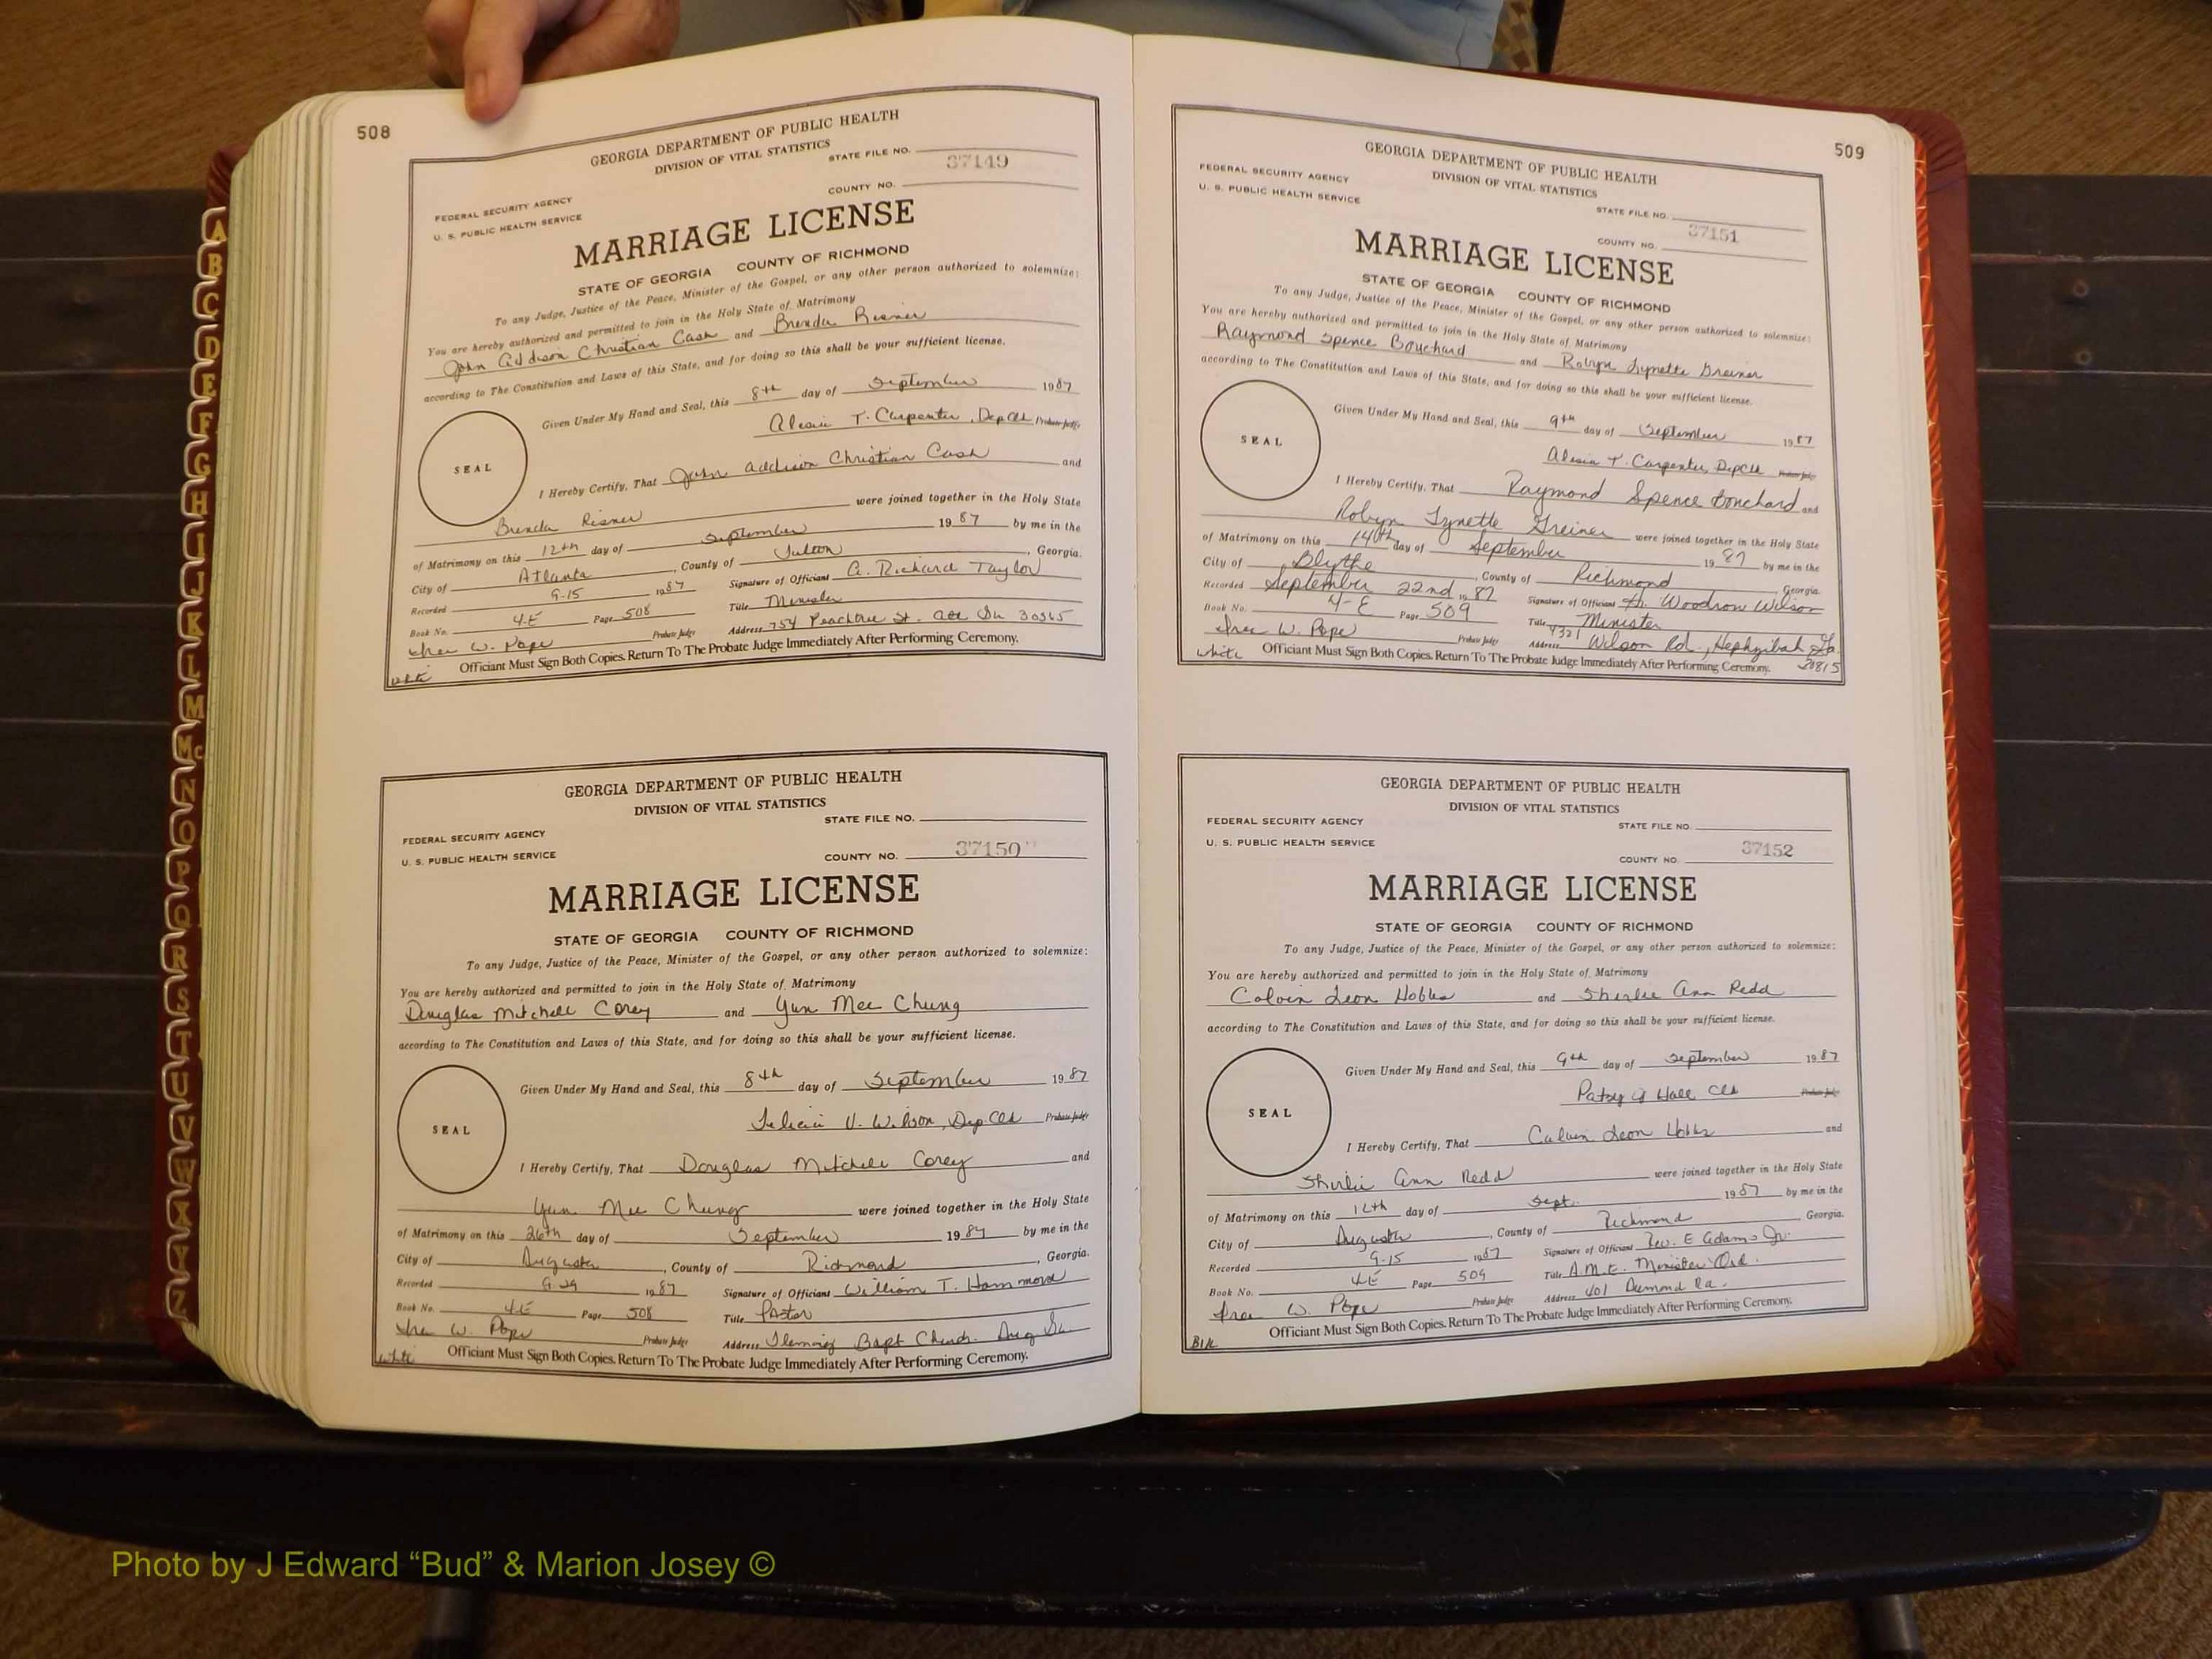 508
GEORGIA DEPARTMENT OF PUBLIC HEALTH
DIVISION OF VITAL STATISTICS
STATE FILE NO.
37149
COUNTY NO.
FEDERAL SECURITY AGENCY
U. S. PUBLIC HEALTH SERVICE
MARRIAGE LICENSE
STATE OF GEORGIA COUNTY OF RICHMOND
To any Judge, Justice of the Peace, Minister of the Gospel, or any other person authorized to solemnize:
You are hereby authorized and permitted to join in the Holy State of Matrimony
John Addison Christian Cash and Brenda Risner
according to The Constitution and Laws of this State, and for doing so this shall be your sufficient license.
Given Under My Hand and Seal, this 8th day of September 1987
Alesia T. Carpenter, Dep Clk Probate Judge
SEAL
I Hereby Certify, That John Addison Christian Cash and
Brenda Risner were joined together in the Holy State
of Matrimony on this 12th day of September 1987 by me in the
City of Atlanta, County of Fulton, Georgia.
Recorded 9-15 1987 Signature of Officiant G. Richard Taylor
Book No. 4-E Page 508 Title Minister
Ira W. Pope Probate Judge Address 754 Peachtree St. Atl Ga 30365
Officiant Must Sign Both Copies. Return To The Probate Judge Immediately After Performing Ceremony.
White
GEORGIA DEPARTMENT OF PUBLIC HEALTH
DIVISION OF VITAL STATISTICS
STATE FILE NO.
FEDERAL SECURITY AGENCY
U. S. PUBLIC HEALTH SERVICE
COUNTY NO. 37150
MARRIAGE LICENSE
STATE OF GEORGIA COUNTY OF RICHMOND
To any Judge, Justice of the Peace, Minister of the Gospel, or any other person authorized to solemnize:
You are hereby authorized and permitted to join in the Holy State of Matrimony
Douglas Mitchell Corey and Yun Mee Chung
according to The Constitution and Laws of this State, and for doing so this shall be your sufficient license.
Given Under My Hand and Seal, this 8th day of September 1987
Felicia V. Wilson, Dep Clk Probate Judge
SEAL
I Hereby Certify, That Douglas Mitchell Corey and
Yun Mee Chung were joined together in the Holy State
of Matrimony on this 26th day of September 1987 by me in the
City of Augusta, County of Richmond, Georgia.
Recorded 9-29 1987 Signature of Officiant William T. Hammond
Book No. 4-E Page 508 Title Pastor
Ira W. Pope Probate Judge Address Fleming Bapt Church. Aug Ga
Officiant Must Sign Both Copies. Return To The Probate Judge Immediately After Performing Ceremony.
White
509
GEORGIA DEPARTMENT OF PUBLIC HEALTH
DIVISION OF VITAL STATISTICS
FEDERAL SECURITY AGENCY
U. S. PUBLIC HEALTH SERVICE
STATE FILE NO.
37151
COUNTY NO.
MARRIAGE LICENSE
STATE OF GEORGIA COUNTY OF RICHMOND
To any Judge, Justice of the Peace, Minister of the Gospel, or any other person authorized to solemnize:
You are hereby authorized and permitted to join in the Holy State of Matrimony
Raymond Spence Bouchard and Robyn Lynette Greiner
according to The Constitution and Laws of this State, and for doing so this shall be your sufficient license.
Given Under My Hand and Seal, this 9th day of September 1987
Alesia T. Carpenter, Dep Clk Probate Judge
SEAL
I Hereby Certify, That Raymond Spence Bouchard and
Robyn Lynette Greiner were joined together in the Holy State
of Matrimony on this 14th day of September 1987 by me in the
City of Blythe, County of Richmond, Georgia.
Recorded September 22nd 1987 Signature of Officiant H. Woodrow Wilson
Book No. 4-E Page 509 Title Minister
Ira W. Pope Probate Judge Address 4321 Wilson Rd., Hephzibah Ga. 30815
Officiant Must Sign Both Copies. Return To The Probate Judge Immediately After Performing Ceremony.
White
GEORGIA DEPARTMENT OF PUBLIC HEALTH
DIVISION OF VITAL STATISTICS
FEDERAL SECURITY AGENCY
STATE FILE NO.
U. S. PUBLIC HEALTH SERVICE
COUNTY NO. 37152
MARRIAGE LICENSE
STATE OF GEORGIA COUNTY OF RICHMOND
To any Judge, Justice of the Peace, Minister of the Gospel, or any other person authorized to solemnize:
You are hereby authorized and permitted to join in the Holy State of Matrimony
Calvin Leon Hobbs and Shirlie Ann Redd
according to The Constitution and Laws of this State, and for doing so this shall be your sufficient license.
Given Under My Hand and Seal, this 9th day of September 1987
Patsy J Hall Clk Probate Judge
SEAL
I Hereby Certify, That Calvin Leon Hobbs and
Shirlie Ann Redd were joined together in the Holy State
of Matrimony on this 12th day of Sept. 1987 by me in the
City of Augusta, County of Richmond, Georgia.
Recorded 9-15 1987 Signature of Officiant Rev. E Adams Jr.
Book No. 4-E Page 509 Title A.M.E. Minister Ord.
Ira W. Pope Probate Judge Address 401
Officiant Must Sign Both Copies. Return To The Probate Judge Immediately After Performing Ceremony.
Blk
A
B
C
D
E
F
G
H
I
J
K
L
M
Mc
N
O
P
Q
R
S
T
U
V
W
X
Y
Z
Photo by J Edward “Bud” & Marion Josey ©